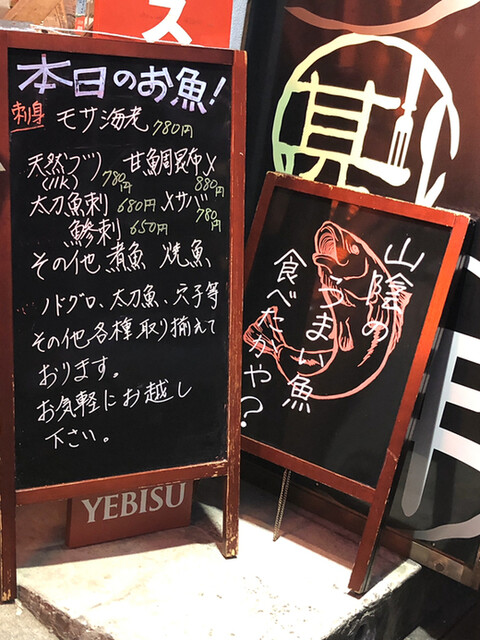 ス
本日のお魚!
刺身 モサ海老 780円
天然ブリ 780円 甘鯛昆布〆 880円
太刀魚刺 680円 〆サバ 780円
鯵刺 650円
その他 煮魚 焼魚
ノドグロ、太刀魚、穴子等
その他各種取り揃えて
おります。
お気軽にお越し
下さい。
YEBISU
山陰の
うまい魚
食べたかや?